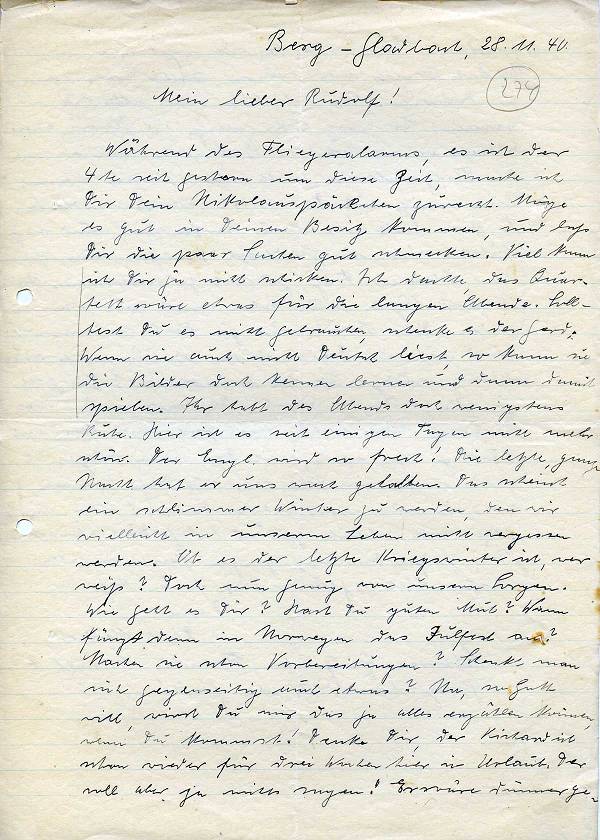 Berg-Gladbach, 28.11.40.
274
Mein lieber Rudolf!
Während des Fliegeralarms, es ist der
4te seit gestern um diese Zeit, mache ich
Dir Dein Nikolauspäckchen zurecht. Möge
es gut in Deinen Besitz kommen, und laß
Dir die paar Sachen gut schmecken. Viel kann
ich Dir ja nicht schicken. Ich dachte, das Quar-
tett wäre etwas für die langen Abende. Soll-
test Du es nicht gebrauchen, schenke es der Gerd.
Wenn sie auch nicht Deutsch liest, so kann sie
die Bilder doch kennen lernen und dann damit
spielen. Ihr habt des Abends doch wenigstens
Ruhe. Hier ist es seit einigen Tagen nicht mehr
schön. Der Engl. wird so frech! Die letzte ganze
Nacht hat er uns wach gehalten. Das scheint
ein schlimmer Winter zu werden, den wir
vielleicht in unserm Leben nicht vergessen
werden. Ob es der letzte Kriegswinter ist, wer
weiß? Doch nun genug von unsern Sorgen.
Wie geht es Dir? Hast Du guten Mut? Wann
fängt denn in Norwegen das Julfest an?
Machen sie schon Vorbereitungen? Schenkt man
sich gegenseitig auch etwas? Nu, so Gott
will, wirst Du mir das ja alles erzählen können,
wenn Du kommst! Denke Dir, der Richard ist
schon wieder für drei Wochen hier in Urlaub. Der
soll aber ja nichts sagen! Er wäre dünner ge-